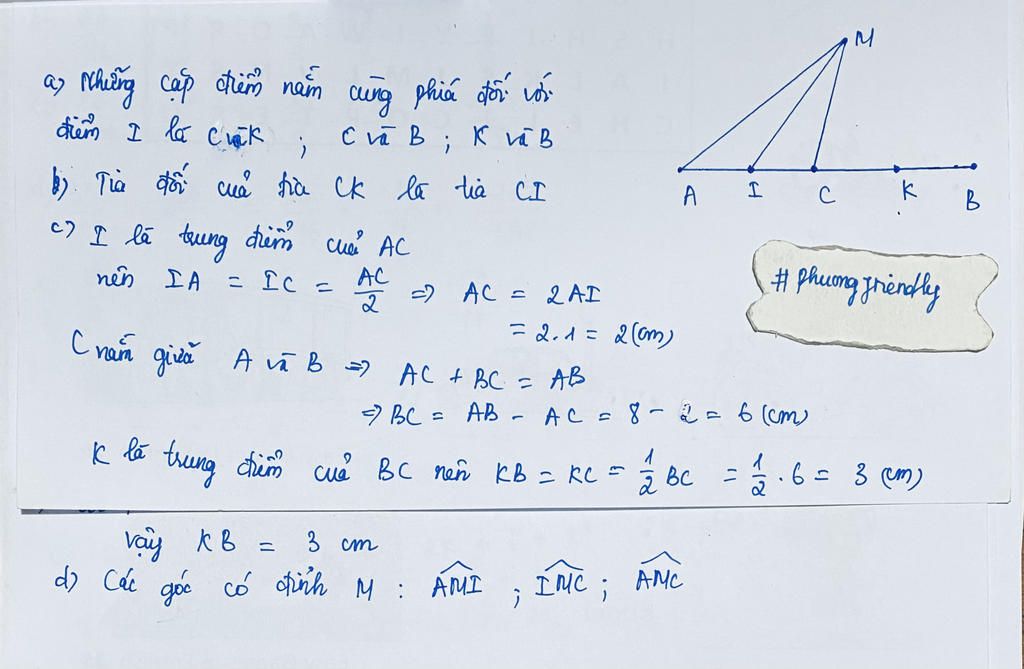 a) Những cặp điểm nằm cùng phía đối với
điểm I là C và K ; C và B ; K và B
b) Tia đối của tia CK là tia CI
c) I là trung điểm của AC
nên IA = IC = AC/2 => AC = 2AI
= 2.1 = 2 (cm)
C nằm giữa A và B => AC + BC = AB
=> BC = AB - AC = 8 - 2 = 6 (cm)
K là trung điểm của BC nên KB = KC = 1/2 BC = 1/2 . 6 = 3 (cm)
vậy KB = 3 cm
d) Các góc có đỉnh M : ∠AMI ; ∠IMC ; ∠AMC
M
A I C K B
# phuongfriendly